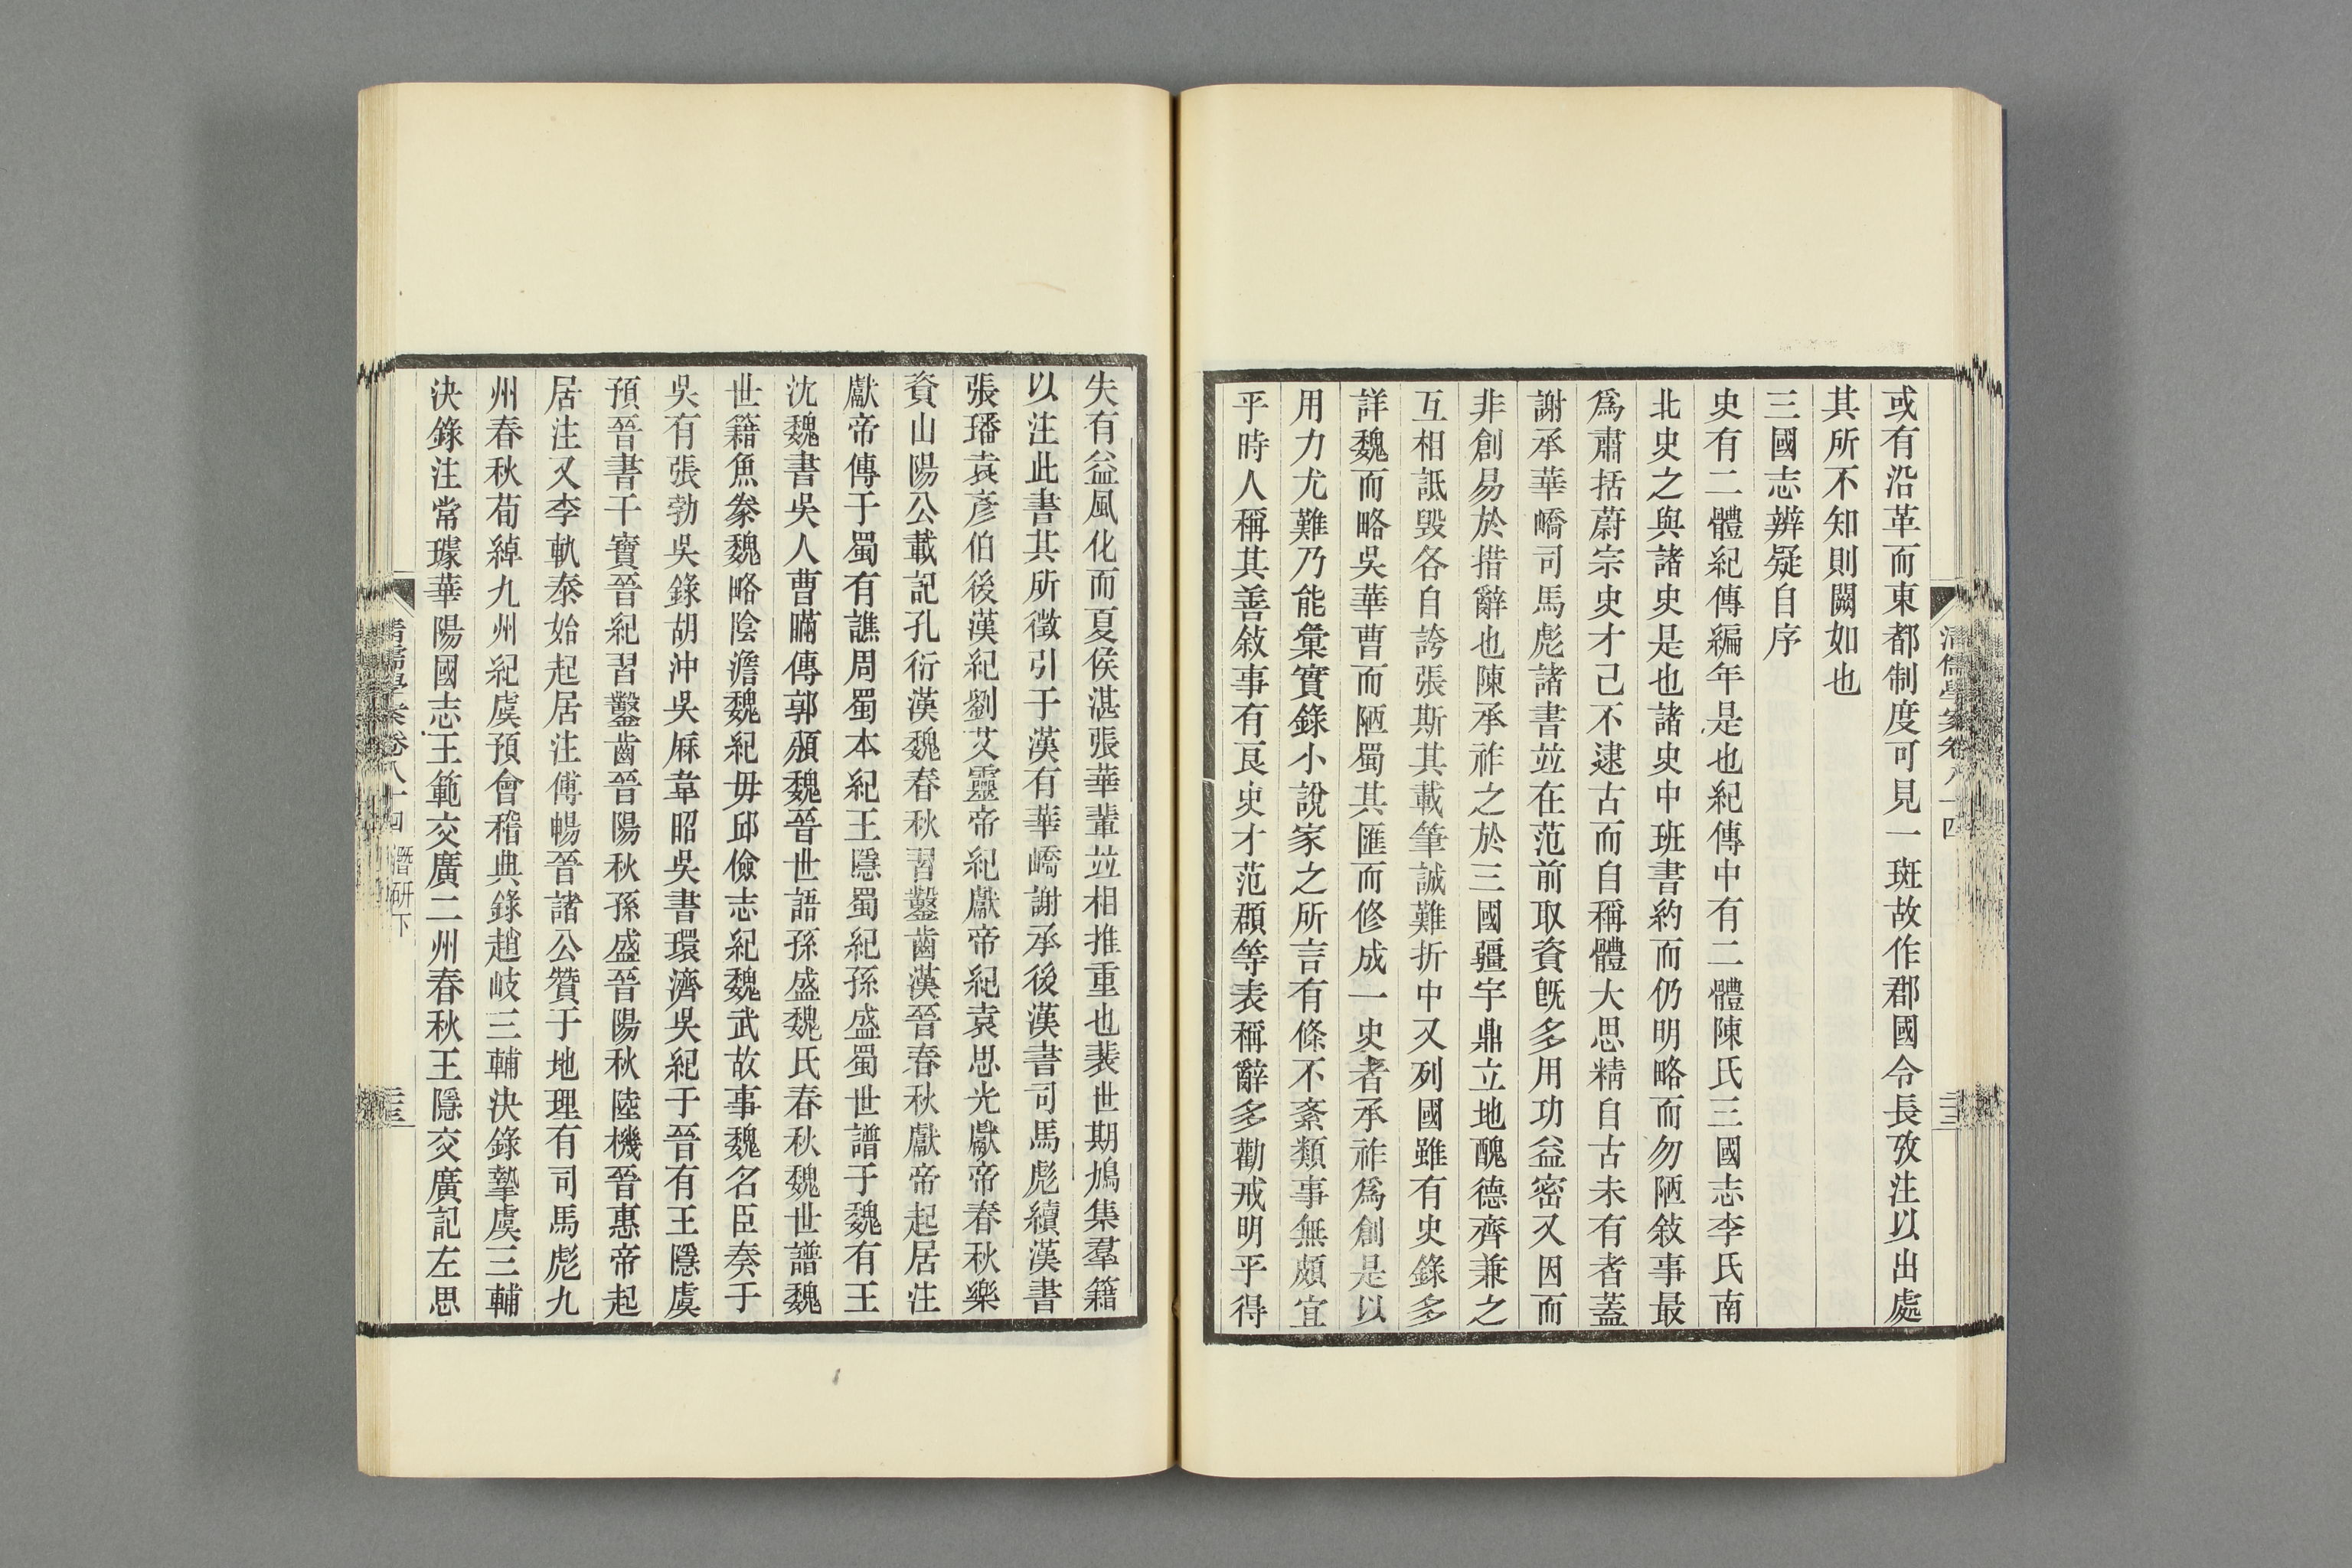 或有沿革而東都制度可見一斑故作郡國令長攷注以出處
其所不知則闕如也
三國志辨疑自序
史有二體紀傳編年是也紀傳中有二體陳氏三國志李氏南
北史之與諸史是也諸史中班書約而仍明略而勿陋敘事最
爲肅括蔚宗史才己不逮古而自稱體大思精自古未有者蓋
謝承華嶠司馬彪諸書竝在范前取資旣多用功益密又因而
非創易於措辭也陳承祚之於三國疆宇鼎立地醜德齊兼之
互相詆毀各自誇張斯其載筆誠難折中又列國雖有史錄多
詳魏而略吳華曹而陋蜀其匯而修成一史者承祚爲創是以
用力尤難乃能彙實錄小說家之所言有條不紊類事無頗宜
乎時人稱其善敘事有良史才范頵等表稱辭多勸戒明乎得
清儒學案卷八十四
三三
失有益風化而夏侯湛張華輩竝相推重也裴世期鳩集羣籍
以注此書其所徵引于漢有華嶠謝承後漢書司馬彪續漢書
張璠袁彥伯後漢紀劉艾靈帝紀獻帝紀袁思光獻帝春秋樂
資山陽公載記孔衍漢魏春秋習鑿齒漢晉春秋獻帝起居注
獻帝傳于蜀有譙周蜀本紀王隱蜀紀孫盛蜀世譜于魏有王
沈魏書吳人曹瞞傳郭頒魏晉世語孫盛魏氏春秋魏世譜魏
世籍魚豢魏略陰澹魏紀毋邱儉志紀魏武故事魏名臣奏于
吳有張勃吳錄胡沖吳厤韋昭吳書環濟吳紀于晉有王隱虞
預晉書干寶晉紀習鑿齒晉陽秋孫盛晉陽秋陸機晉惠帝起
居注又李軌泰始起居注傅暢晉諸公贊于地理有司馬彪九
州春秋荀綽九州紀虞預會稽典錄趙岐三輔決錄摯虞三輔
決錄注常璩華陽國志王範交廣二州春秋王隱交廣記左思
清儒學案卷八十四 潛研下
三三